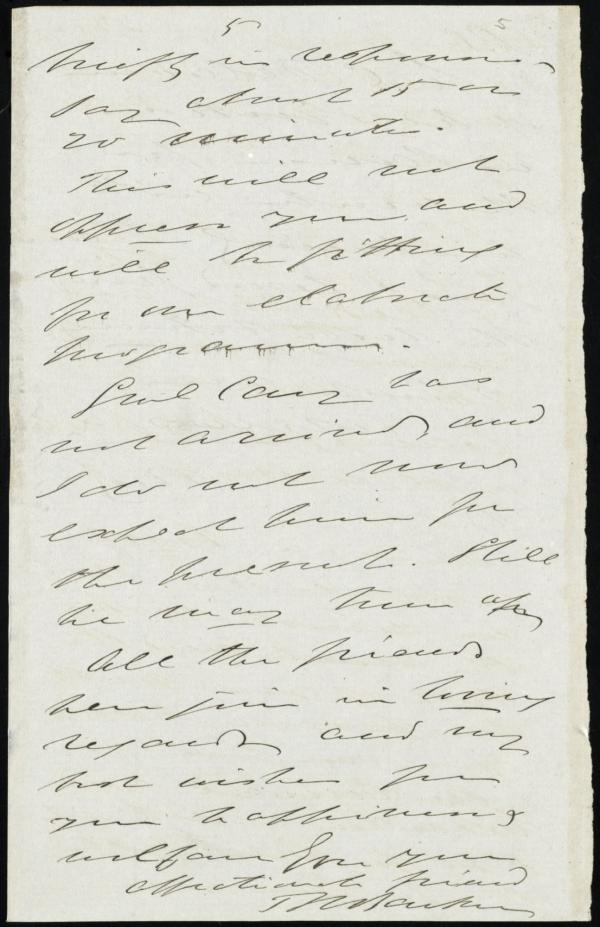 5 5
briefly in response,
say about 15 or
20 minutes.
This will not
oppress you and
will be fitting
for our elaborate
programme.
Genl Cary has
not arrived and
I do not now
expect him for
the present. Still
he may turn up
All the friends
here join in loving
regards and my
best wishes for
your happiness &
welfare Ever your
affectionate friend